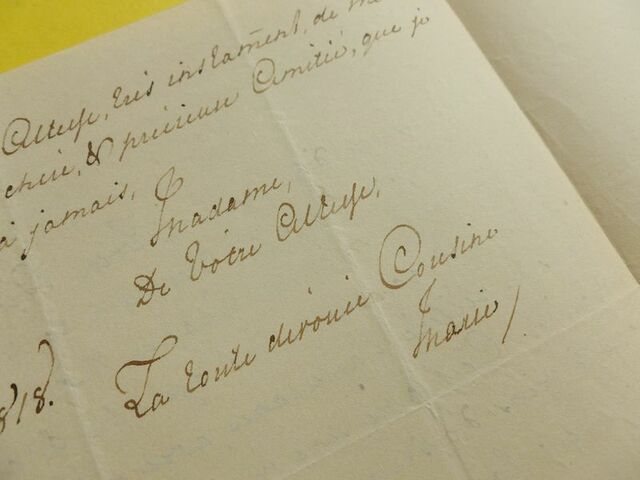 Altesse, très instamment, de me
chère, & précieuse Amitié, que je
à jamais,
Madame,
De Votre Altesse,
La toute dévouée Cousine
Marie
1818.